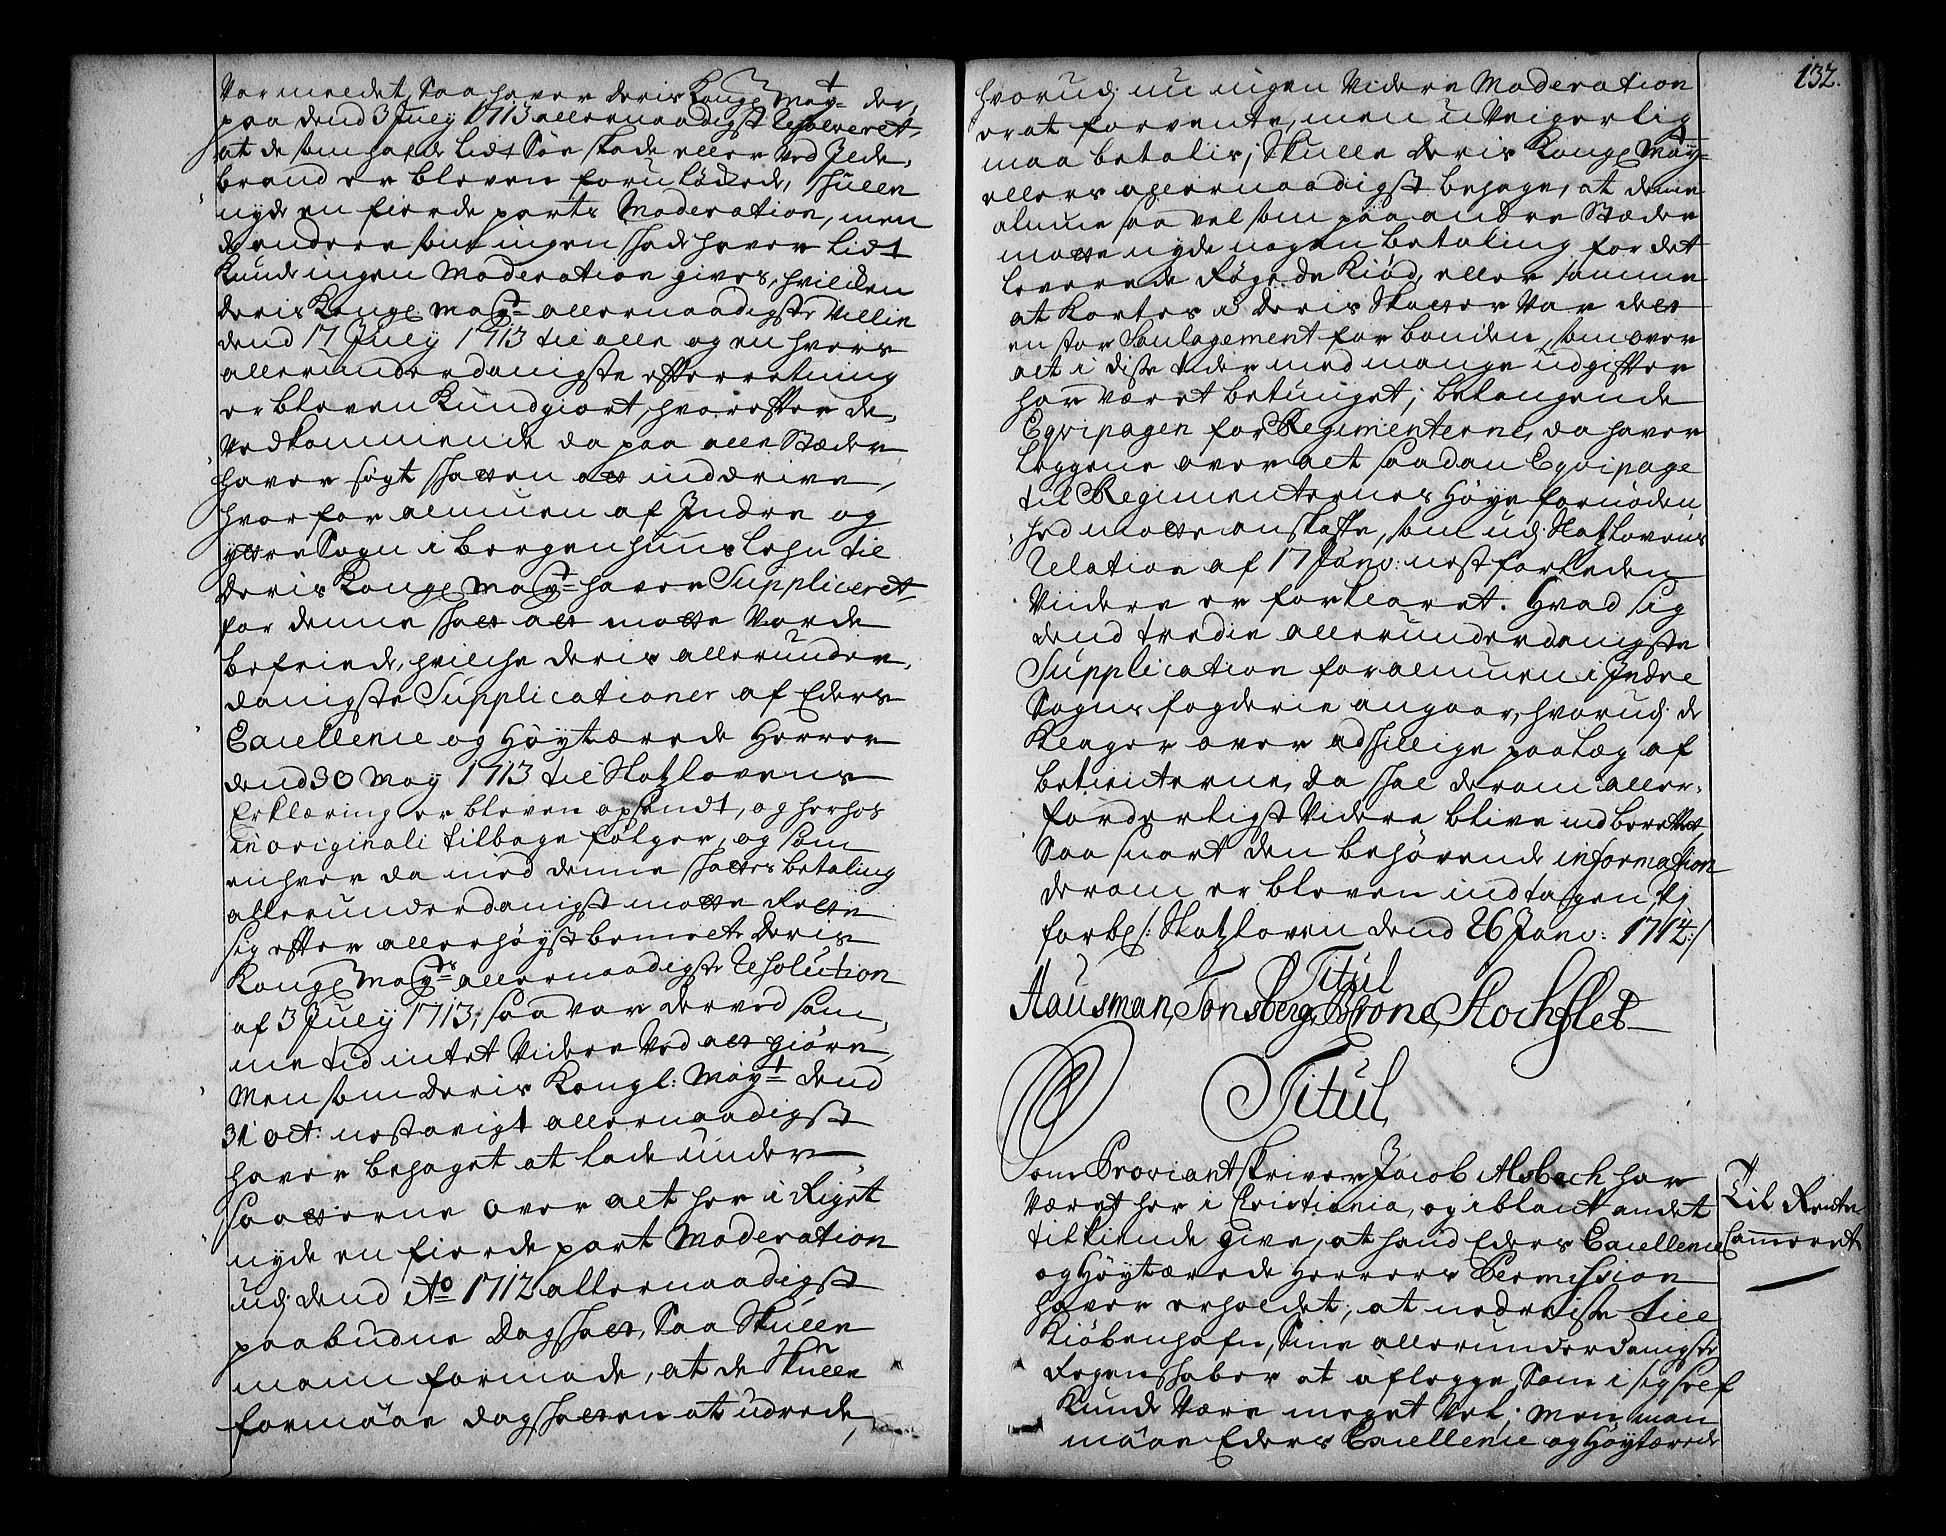 Vormeldet, Saa haver deris Kongl May.t der,
paa dend 3 Juey 1713 allernaadigst Resolveret
at de som hafr lidt Søe skade eller ved Ilde,
brand er bleven foruløckede, skulle
nyde en fierde parts Moderation, men
de andere som ingen skade haver lidt
kunde ingen Moderation gives, hvilcken
deris Kongl: May.ts allernaadigste Villie
dend 17 Juey 1713 til alle og en hvers
allerunderdanigste efterretning
er bleven Kundgiort, hvorefter de,
Vedkommende da paa alle Stæder
haver søgt skatten att inddrive,
hvorfor almuen af Indre og
yttre Sogn i Bergenhuus lehn til
Deris Kongl May.t haver Suppliceret
for denne skatt att motte Vorde
befriede, hvilche deris allerunder,
danigste Supplicationer af Eders
Excellence og Høytærede Herrer
dend 30 May 1713 til Slotzlovens
Erklæring er bleven opsendt, og herhos
in originali tilbage følger, og som
enhver da med denne skattes betaling
allerunderdanigst motte Rette
sig efter allerhøystbemelte Deris
Kongl May.ts allernaadigste Resolution
af 3 Juey 1713, saa var derved sam,
me tid intet Videre Ved att giøre,
Men som Deris Kongl: May.t dend
31 Oct: nestavigt allernaadigst
haver behaget at lade under,
saatterne over alt her i Riget
nyde en fierde part Moderation
udj dend Ao 1712 allernaadigst
paabudne Dagskatt, Saa Skulle
man formode, at de Skulle
formaae dagskatten at udrede,
132.
hvorudj nu ingen Videre Moderation
er at forvente, men uVeigerlig
maa betalis; Skulle deris Kongl May.t
ellers allernaadigst behage, at denne
almue saa vel som paa andre Stæder
motte nyde nogen betaling for det
leverede Røgede Kiød, eller samme
at Kortes i deris Skatter Var dett
en stor Soulagement for bonden, som over
alt i disse tider med mange udgifter
har været betynget; belangende
Eqvipagen for Regimenterne, da haver
Leggene over alt saadan Eqvipage
til Regimenternes Høye fornøden
hed motte anskaffe, som udj Slotzlovens
Relation af 17 Janv: nestforleden
Viidere er forklaret. Hvad sig
dend tredie allerunderdanigste
Supplication for almuen i Indre
Sogns fogderie angaar, hvorudj de
Klager over adskillige paalæg af
betienterne, Da skal derom aller,
forderligst Videre blive indberettet,
Saa snart den behørende information
derom er bleven indtagen, Vj
forbl/: Slotzloven dend 26 Janv: 1714:/
Titul
Hausman, Tonsberg, Brone, Stochflet
Titul
Som Proviantskriver Jacob Alsbech har
Været her i Christiania, og iblant andet
tilkiende give, at hand Eders Excellence
og Høytærede Herrers Permission
haver erholdet, at nedreise till
Kiøbenhafn, Sine allerunderdanigste
Regenskaber at aflegge, Som i sig self
Kunde Være meget Vel; Men man
maae Eders Excellence og Høytærede
Til Rente
Cammeret